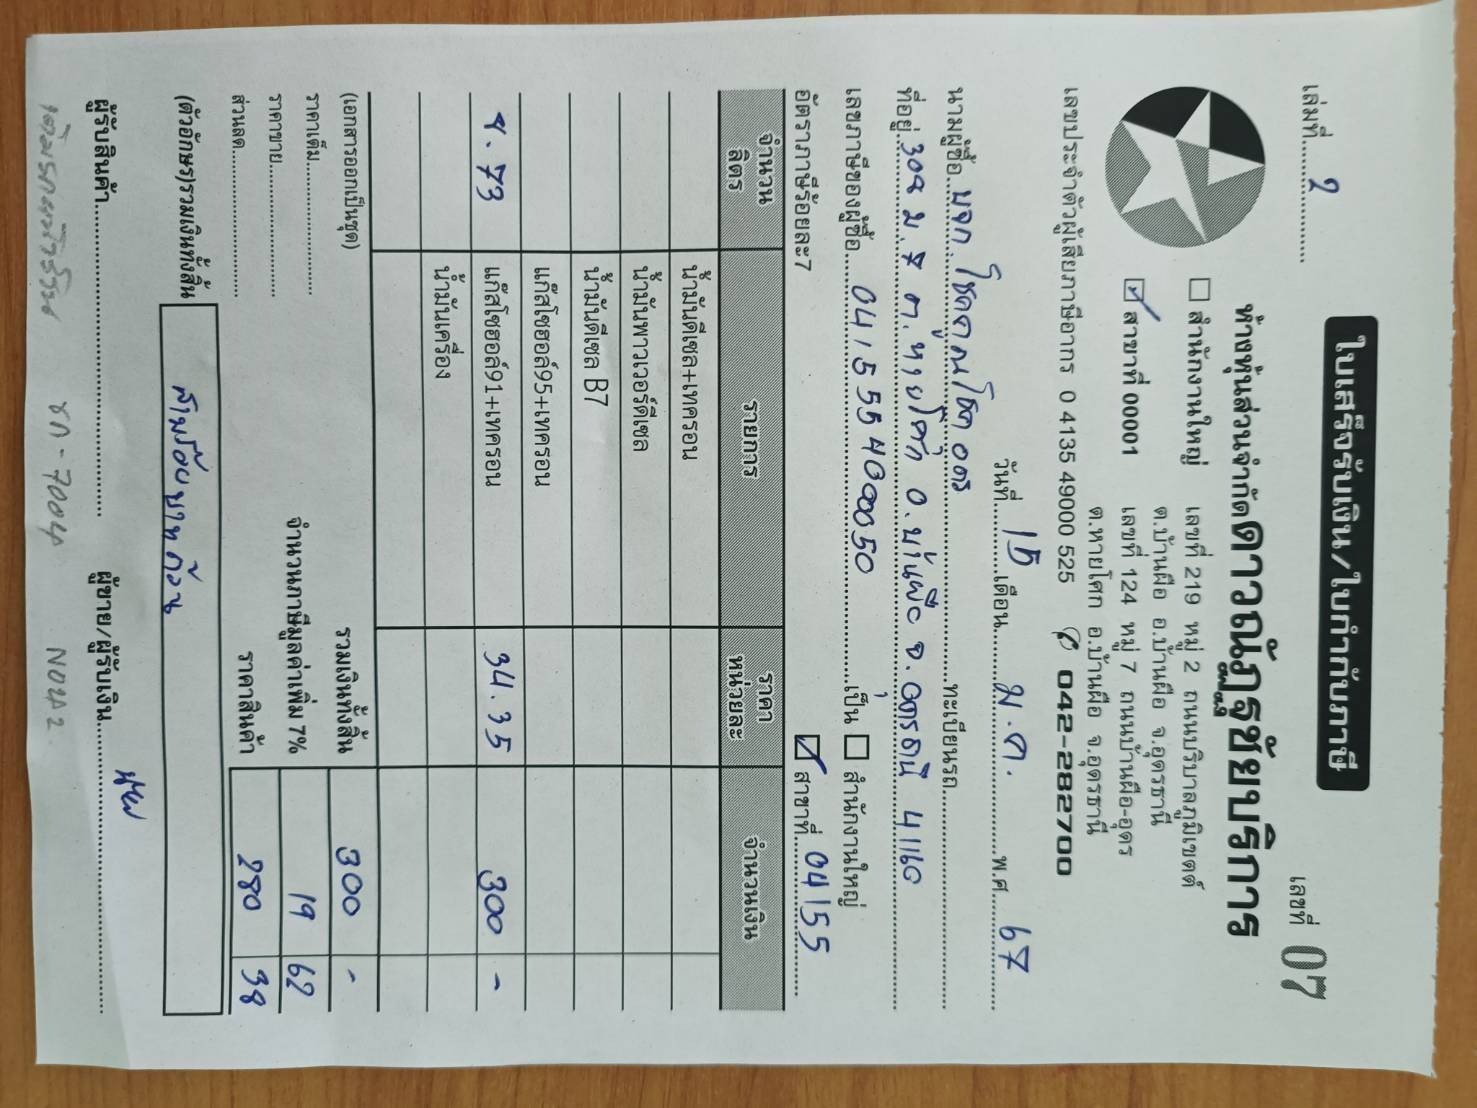 ใบเสร็จรับเงิน/ใบกำกับภาษี
เล่มที่ 2
เลขที่ 07
ห้างหุ้นส่วนจำกัดดาวณัฏฐชัยบริการ
สำนักงานใหญ่ เลขที่ 219 หมู่ 2 ถนนบริบาลภูมิเขตต์
ต.บ้านผือ อ.บ้านผือ จ.อุดรธานี
สาขาที่ 00001 เลขที่ 124 หมู่ 7 ถนนบ้านผือ-อุดร
ต.หายโศก อ.บ้านผือ จ.อุดรธานี
เลขประจำตัวผู้เสียภาษีอากร 0 4135 49000 525 042-282700
วันที่ 15 เดือน ม.ค. พ.ศ. 67
นามผู้ซื้อ บจก. โชคคูณโชค อุดร ทะเบียนรถ
ที่อยู่ 309 ม.7 ต.หายโศก อ.บ้านผือ จ.อุดรธานี 41160
เลขภาษีของผู้ซื้อ 0415554000050 เป็น สำนักงานใหญ่
อัตราภาษีร้อยละ7 สาขาที่ 04155
จำนวนลิตร รายการ ราคาหน่วยละ จำนวนเงิน
น้ำมันดีเซล+เทครอน
น้ำมันพาวเวอร์ดีเซล
น้ำมันดีเซล B7
แก๊สโซฮอล์95+เทครอน
8.73 แก๊สโซฮอล์91+เทครอน 34.35 300 -
น้ำมันเครื่อง
(เอกสารออกเป็นชุด) รวมเงินทั้งสิ้น 300 -
ราคาเต็ม
จำนวนภาษีมูลค่าเพิ่ม 7% 19 62
ราคาขาย
ส่วนลด ราคาสินค้า 280 38
(ตัวอักษร)รวมเงินทั้งสิ้น สามร้อยบาทถ้วน
ผู้รับสินค้า ผู้ขาย/ผู้รับเงิน